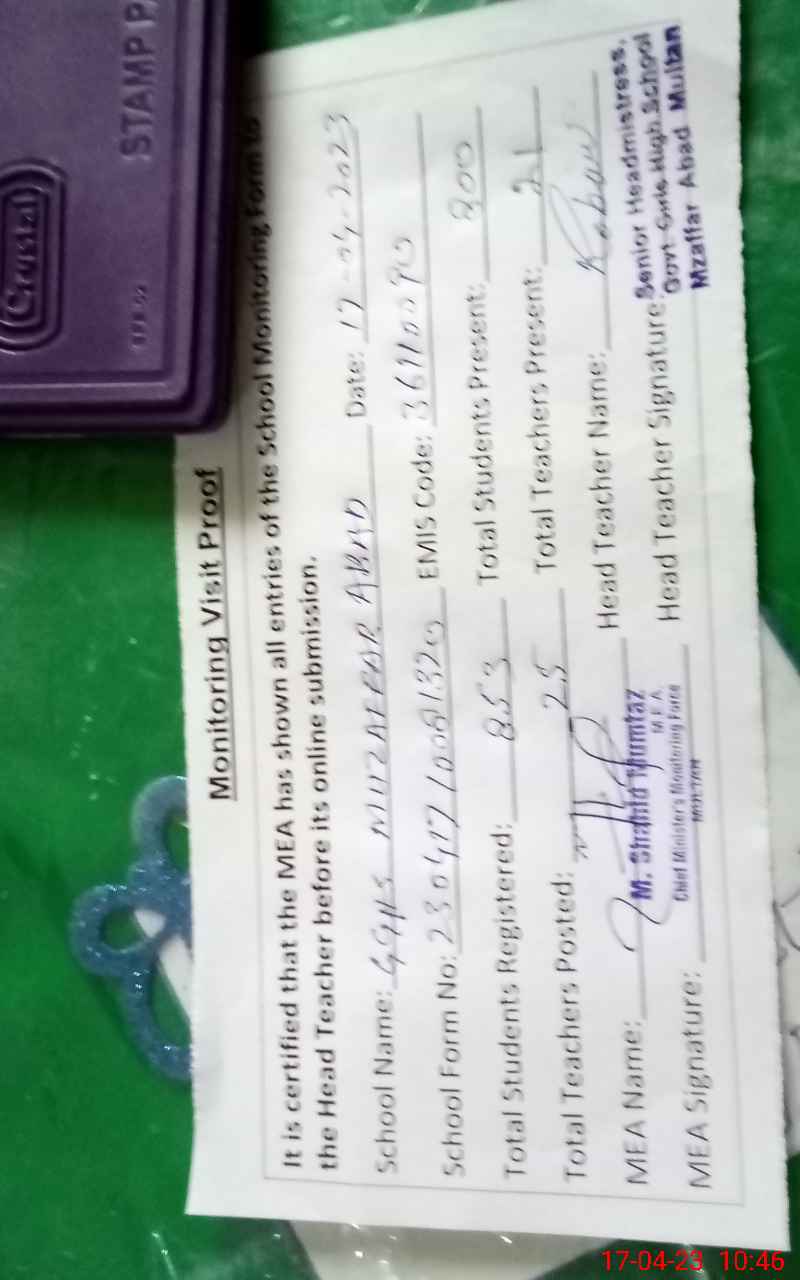 Crystal
STAMP PA
Monitoring Visit Proof
It is certified that the MEA has shown all entries of the School Monitoring Form to
the Head Teacher before its online submission.
School Name: GGHS MUZAFFAR ABAD Date: 17-04-2023
School Form No: EMIS Code: 36110090
Total Students Registered: 853 Total Students Present: 800
Total Teachers Posted: 25 Total Teachers Present: 21
MEA Name: Head Teacher Name:
M. Shahid Mumtaz
M E A
Chief Minister's Monitoring Force
MULTAN
MEA Signature: Head Teacher Signature:
Senior Headmistress,
Govt Girls High School
Mzaffar Abad Multan
17-04-23 10:46